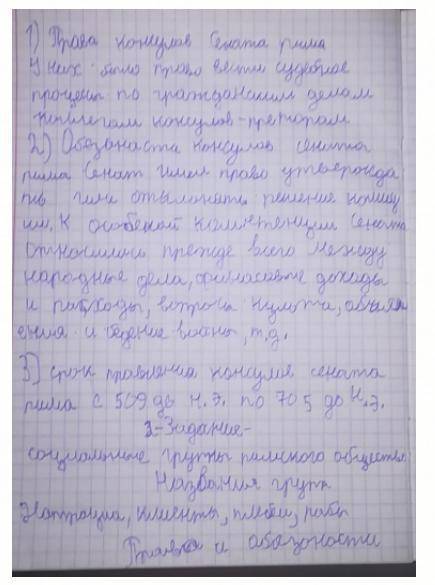 1) Права консулов Сената рима
У них было право вести судебное
процены по гражданским делам
коллегам консулов-преторам
2) Обезаноста консулов сената
рима Сенат имел право утверожда
ть или отклонать решение комиц
ии. К особеной компетенции Сената
относилось прежде всего между
народные дела, финасовые доходы
и расходы, вопросы культа, объявл
ения и ведение войны, т.д.
3) срок правления консулов сената
рима с 509 до н.э. по 705 до н.э.
2-Задание-
социальные группы римского общества
Названия групп
Патриции, клиенты, плебеи, рабы
Права и обазоности